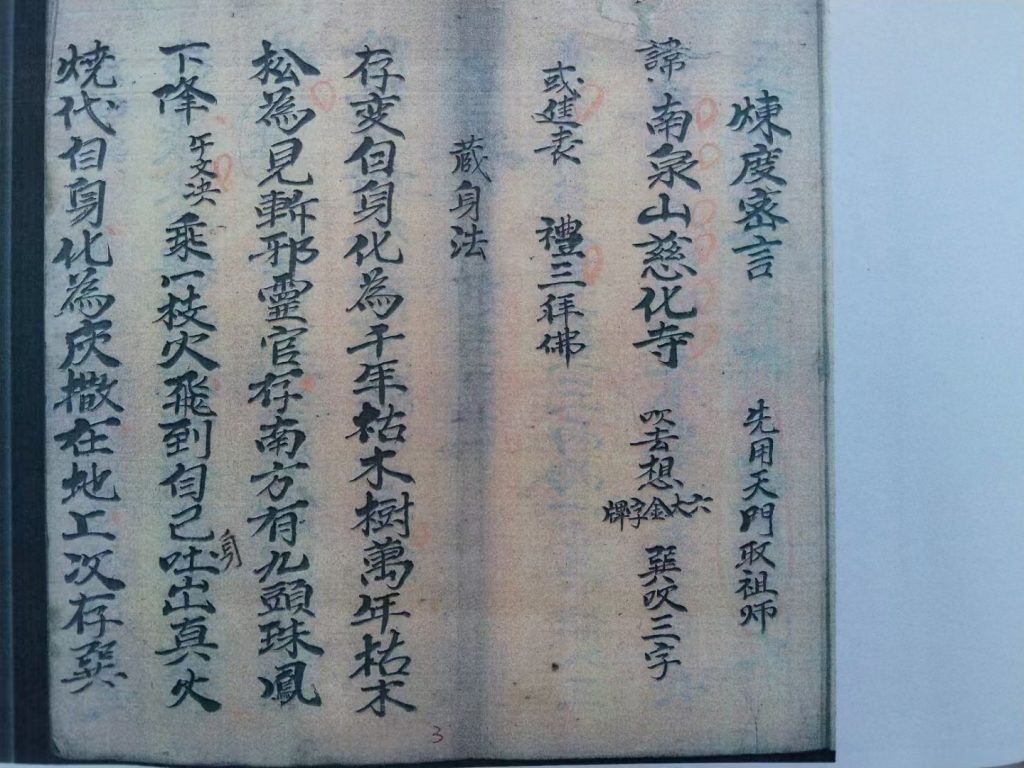 煉度密言　先用天門取祖师
諱　南泉山慈化寺　吹去想六大金字牌　巽吹三字
或進表　禮三拜佛
藏身法
存变自身化為千年枯木樹萬年枯木
松為見斬邪靈官存南方有九頭珠鳳
下降午文决乘一枝火飛到自己身吐出真火
焼代自身化為灰撒在地上次存巽
3